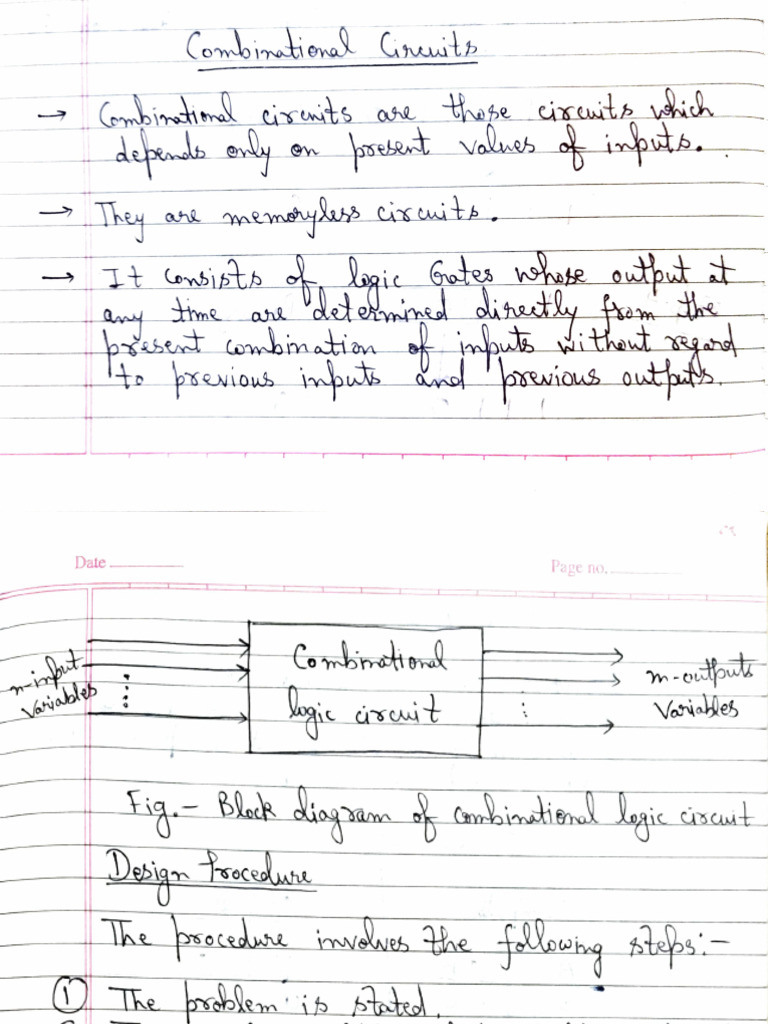 Combinational Circuits
→ Combinational circuits are those circuits which
depends only on present values of inputs.
→ They are memoryless circuits.
→ It consists of logic Gates whose output at
any time are determined directly from the
present combination of inputs without regard
to previous inputs and previous outputs.
Date
Page no.
n-input
variables
Combinational
logic circuit
m-outputs
variables
Fig.- Block diagram of combinational logic circuit
Design Procedure
The procedure involves the following steps:-
① The problem is stated.